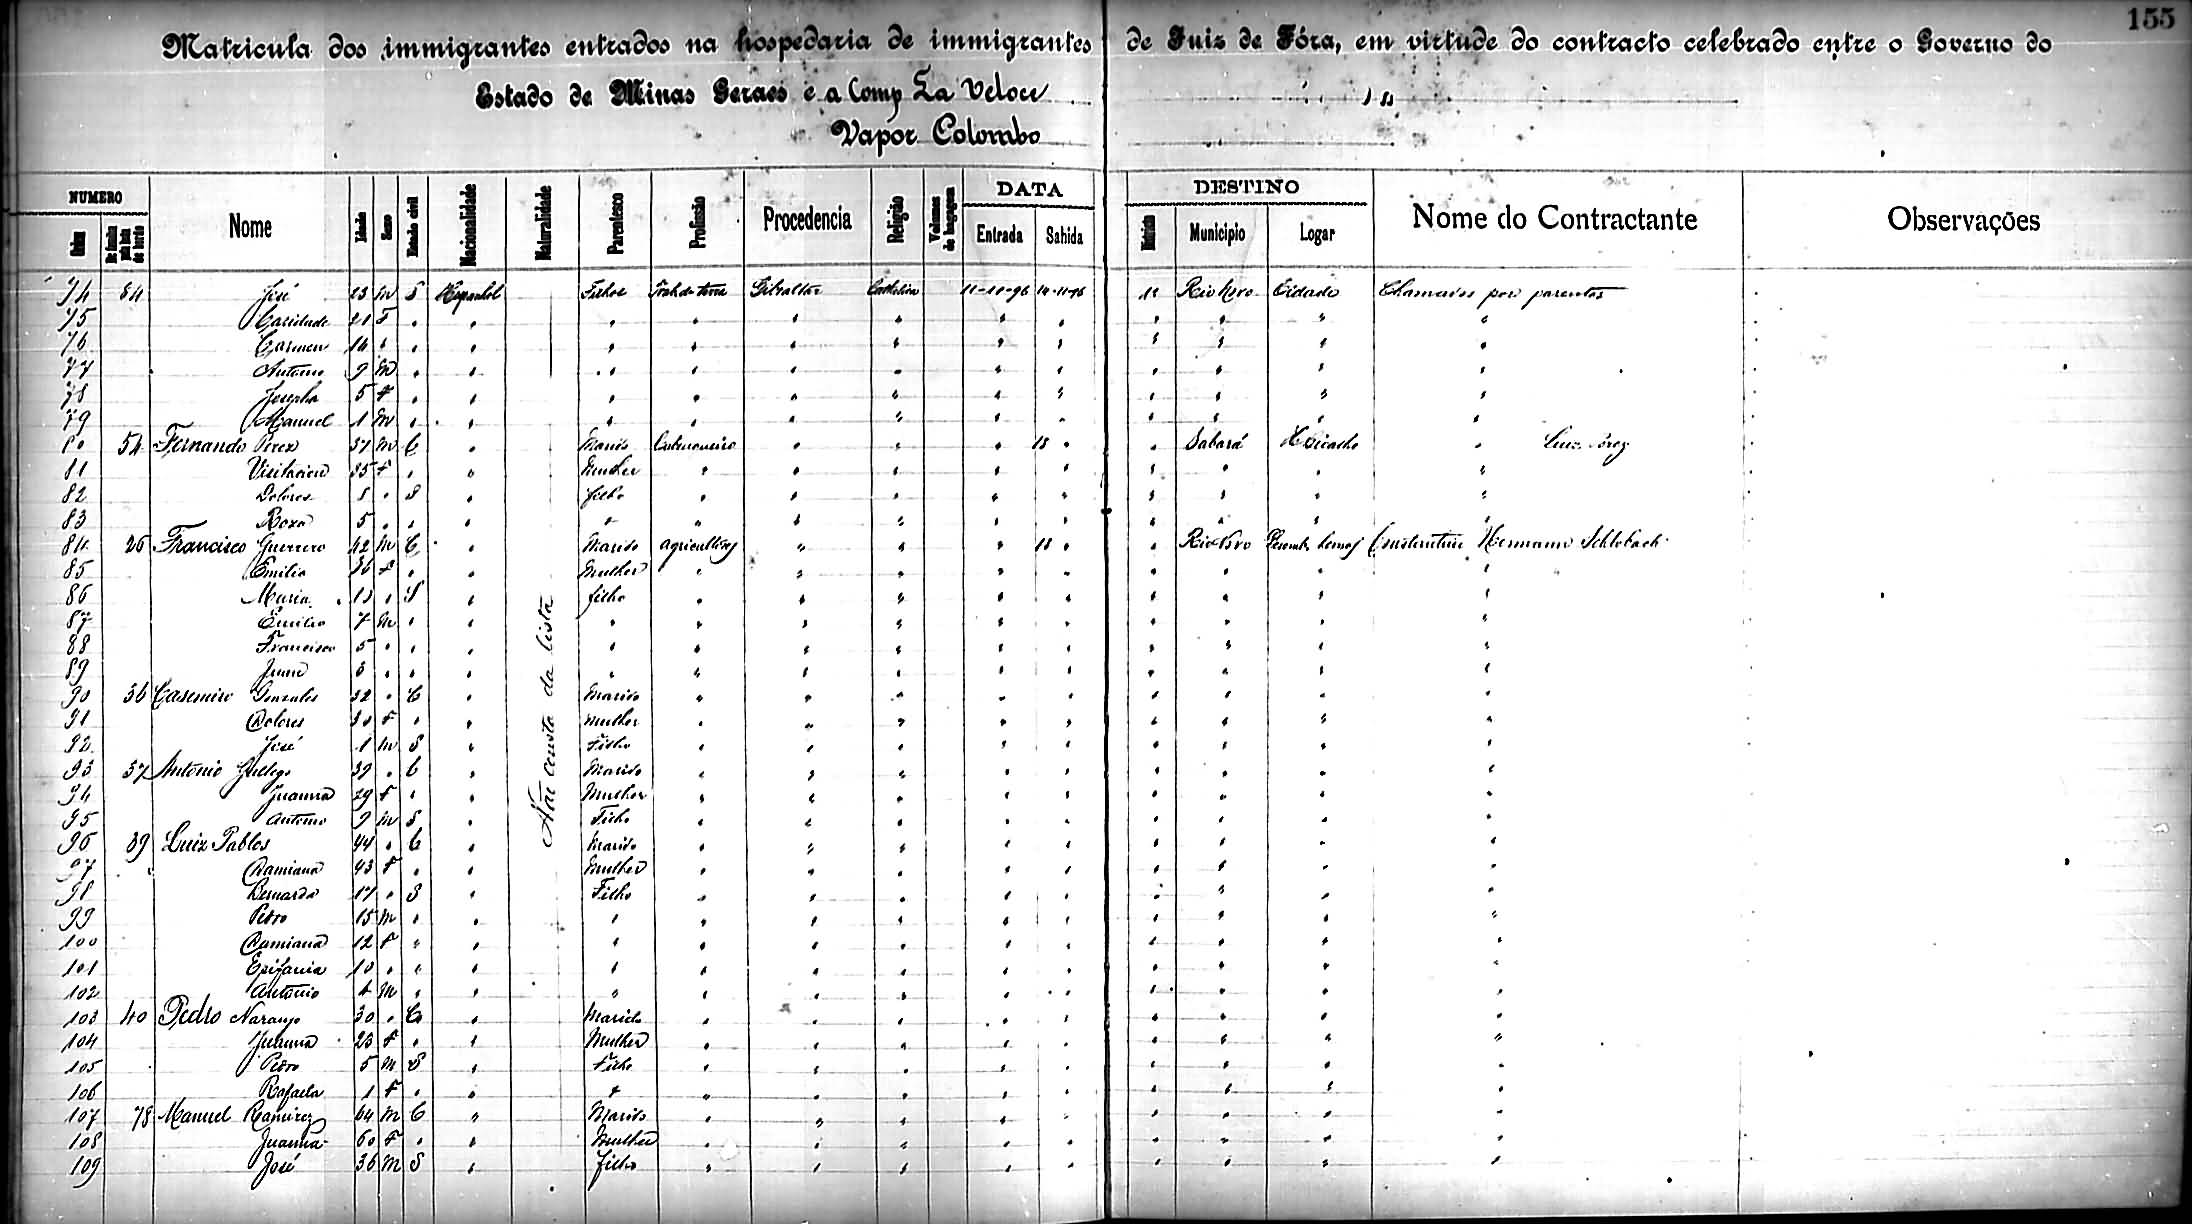 155
Matricula dos immigrantes entrados na hospedaria de immigrantes de Juiz de Fóra, em virtude do contracto celebrado entre o Governo do
Estado de Minas Geraes e a Comp La Veloce
Vapor Colombo
NUMERO Nome Idade Sexo Estado civil Nacionalidade Naturalidade Parentesco Profissão Procedencia Religião Volumes de bagagem DATA DESTINO Nome do Contractante Observações
Ordem De familia pela lista de bordo Entrada Sahida Municipio Logar
74 84 José 23 M S Hespanhol Filhos Gibraltar Catholica 11-11-96 14-11-96 Rio Novo Cidade Chamados por parentes
75 Caridade 21 F " " " " " " " " " " " "
76 Carmen 14 " " " " " " " " " " " " "
77 Antonio 9 M " " " " " " " " " " " "
78 Josepha 5 F " " " " " " " " " " " "
79 Manuel 1 M " " " " " " " " " " " "
80 54 Fernando Perez 37 M C " Marido " " " 18 " " Sabará " Luiz Perez
81 Visitacion 35 F " " Mulher " " " " " " " " "
82 Dolores 8 " S " filho " " " " " " " " "
83 Roza 5 " " " " " " " " " " " " "
84 26 Francisco Guerrero 42 M C " Marido agricultores " " " 18 " " Rio Novo Constructor Hermann Schlobach
85 Emilia 36 F " " Mulher " " " " " " " " "
86 Maria 13 " S " filho " " " " " " " " "
87 Emilio 7 M " " " " " " " " " " " "
88 Francisco 5 " " " " " " " " " " " " "
89 Juan 3 " " " " " " " " " " " " "
90 36 Casemiro Gonzales 32 " C " Marido " " " " " " " " "
91 Dolores 30 F " " Mulher " " " " " " " " "
92 José 1 M S " Filho " " " " " " " " "
93 37 Antonio Gallego 39 " C " Marido " " " " " " " " "
94 Juanna 29 F " " Mulher " " " " " " " " "
95 Antonio 9 M S " Filho " " " " " " " " "
96 39 Luiz Pablos 44 " C " Marido " " " " " " " " "
97 Damiana 43 F " " Mulher " " " " " " " " "
98 Bernarda 17 " S " Filho " " " " " " " " "
99 Pedro 15 M " " " " " " " " " " " "
100 Damiana 12 F " " " " " " " " " " " "
101 Epifania 10 " " " " " " " " " " " " "
102 Antonio 4 M " " " " " " " " " " " "
103 40 Pedro Naranjo 30 " C " Marido " " " " " " " " "
104 Juanna 23 F " " Mulher " " " " " " " " "
105 Pedro 5 M S " Filho " " " " " " " " "
106 Rafaela 1 F " " " " " " " " " " " "
107 78 Manuel Ramirez 64 M C " Marido " " " " " " " " "
108 Juanna 60 F " " Mulher " " " " " " " " "
109 José 36 M S " filho " " " " " " " " "
Não consta da lista